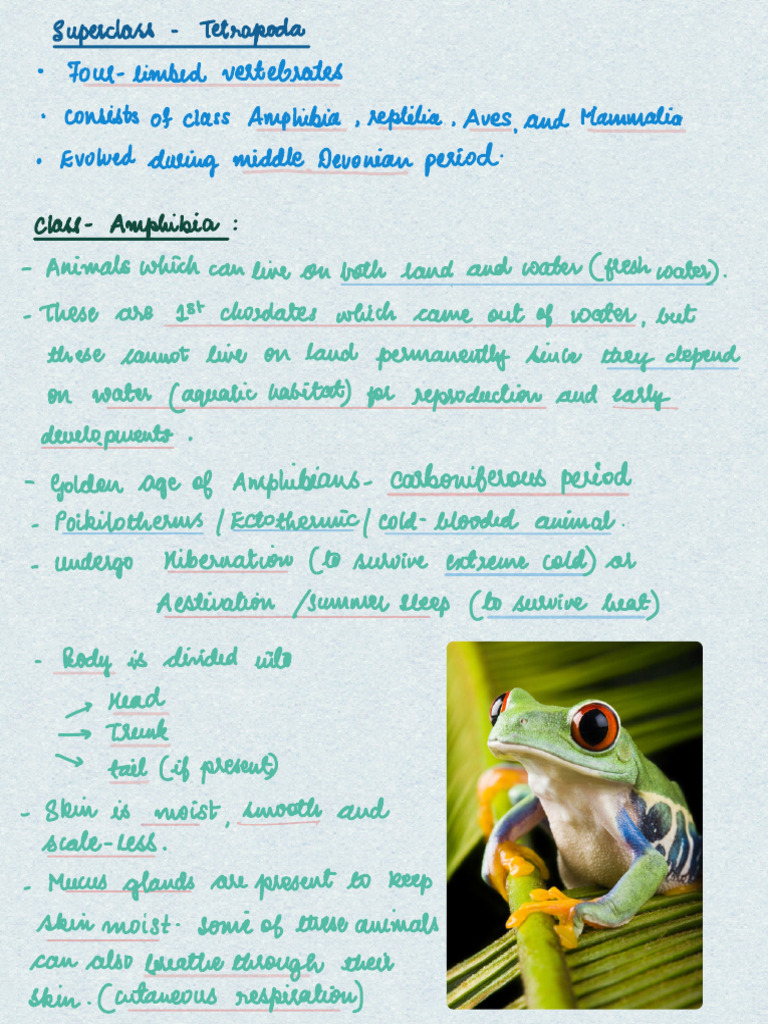 Superclass - Tetrapoda
• Four-limbed vertebrates
• consists of class Amphibia, reptilia, Aves, and Mammalia
• Evolved during middle Devonian period.
Class- Amphibia :
- Animals which can live on both land and water (fresh water).
- These are 1st chordates which came out of water, but
these cannot live on land permanently since they depend
on water (aquatic habitat) for reproduction and early
developments.
- Golden age of Amphibians- carboniferous period
- Poikilotherms / Ectothermic / cold-blooded animal.
- undergo Hibernation (to survive extreme cold) or
Aestivation / summer sleep (to survive heat)
- Body is divided into
→ Head
→ Trunk
→ tail (if present)
- Skin is moist, smooth and
scale-less.
- Mucus glands are present to keep
skin moist. some of these animals
can also breathe through their
skin. (cutaneous respiration)